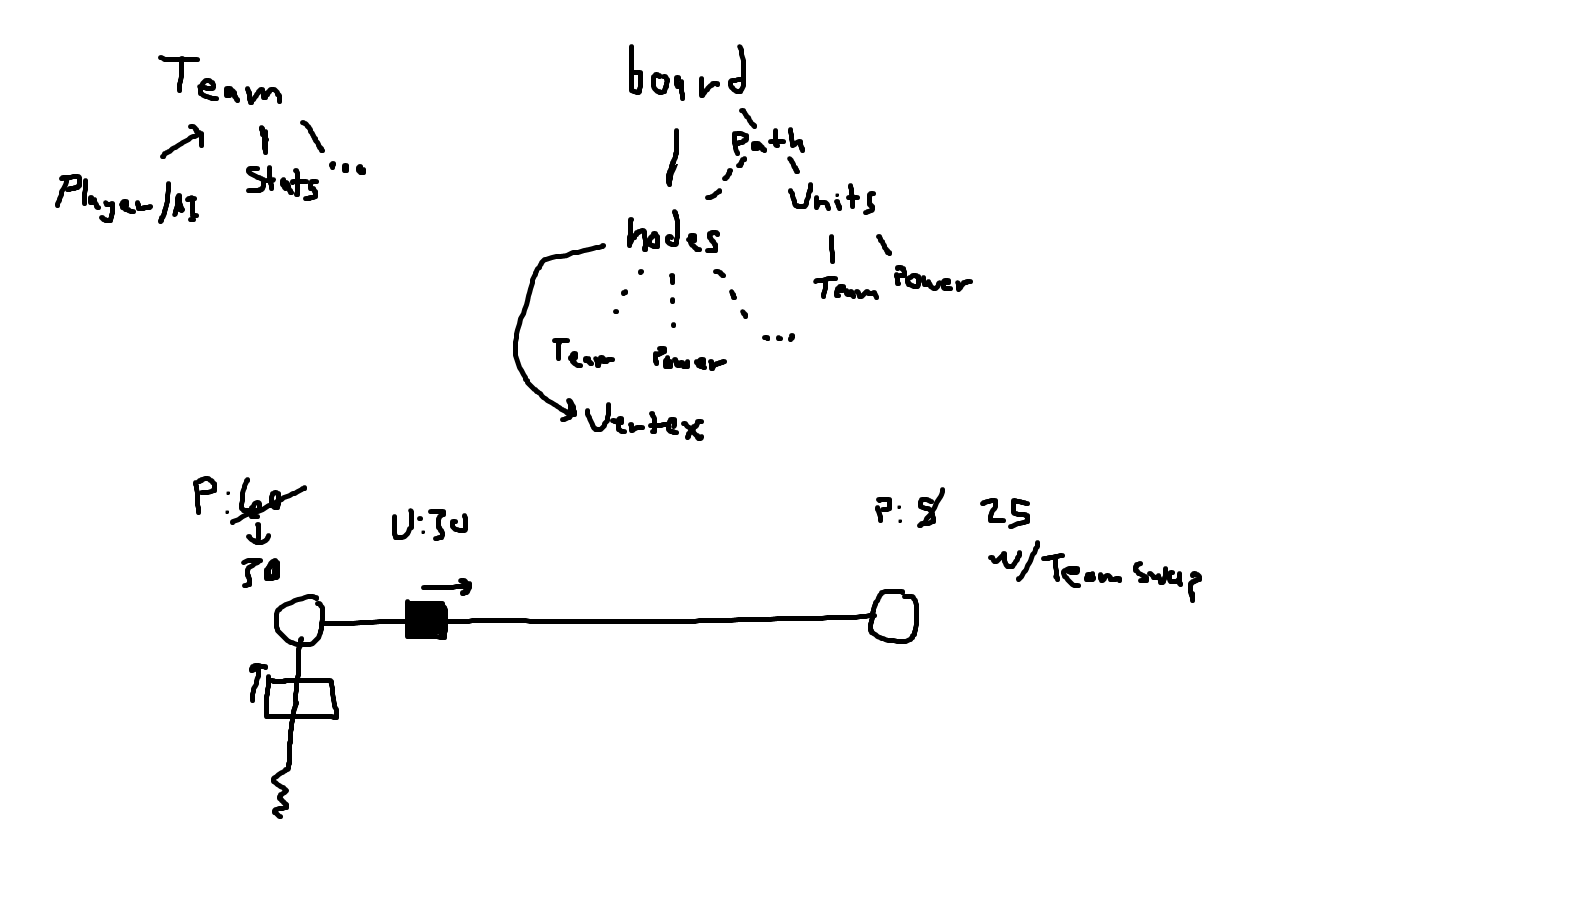 Team
Player/AI
Stats
...
board
Path
Units
Team
Power
nodes
Team
Power
...
Vertex
P:60
30
U:30
P: 5
25
w/Team swap